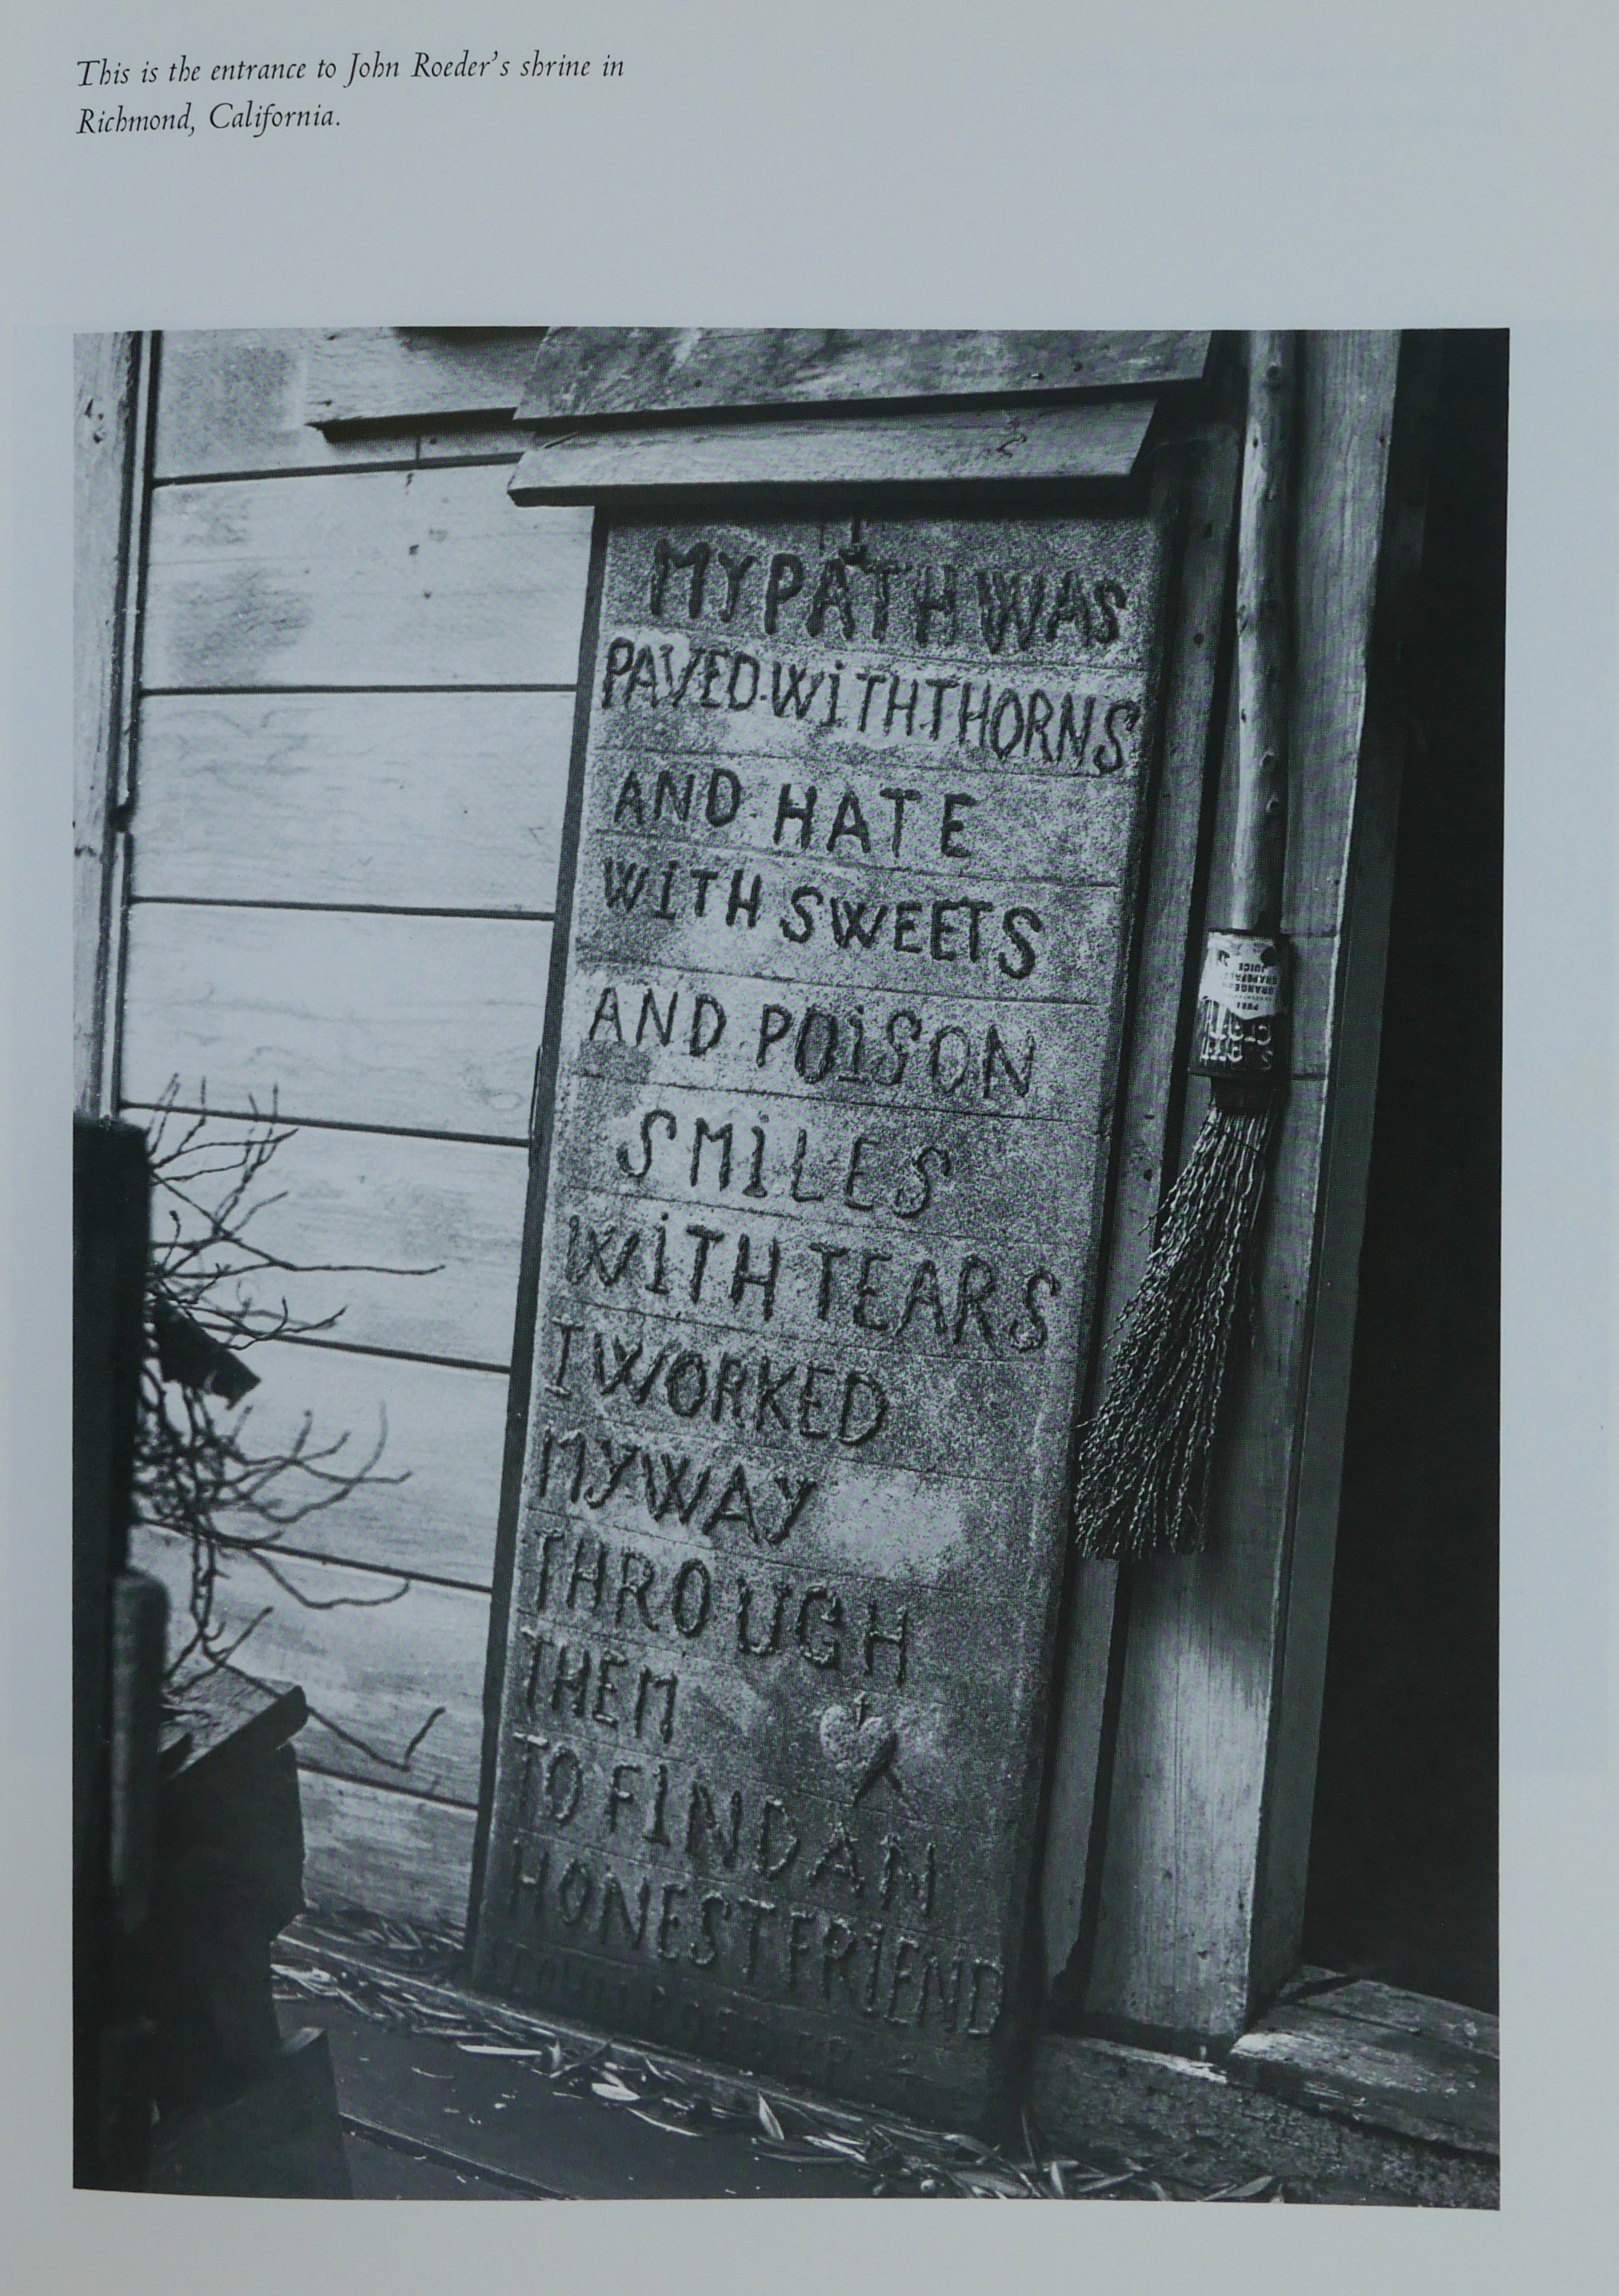 This is the entrance to John Roeder's shrine in
Richmond, California.
MY PATH WAS
PAVED·WiTH·THORNS
AND HATE
WITH SWEETS
AND POiSON
SMiLES
WiTH TEARS
I WORKED
MY WAY
THROUGH
THEM
TO FIND AN
HONEST FRIEND
PURE
ORANGE
GRAPEFRUIT
JUICE